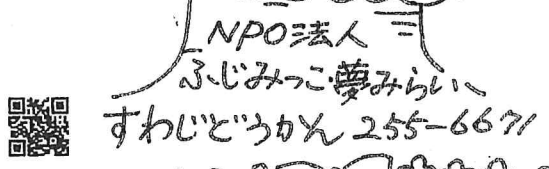 NPO法人
ふじみっこ夢みらい
すわじどうかん 255-6671